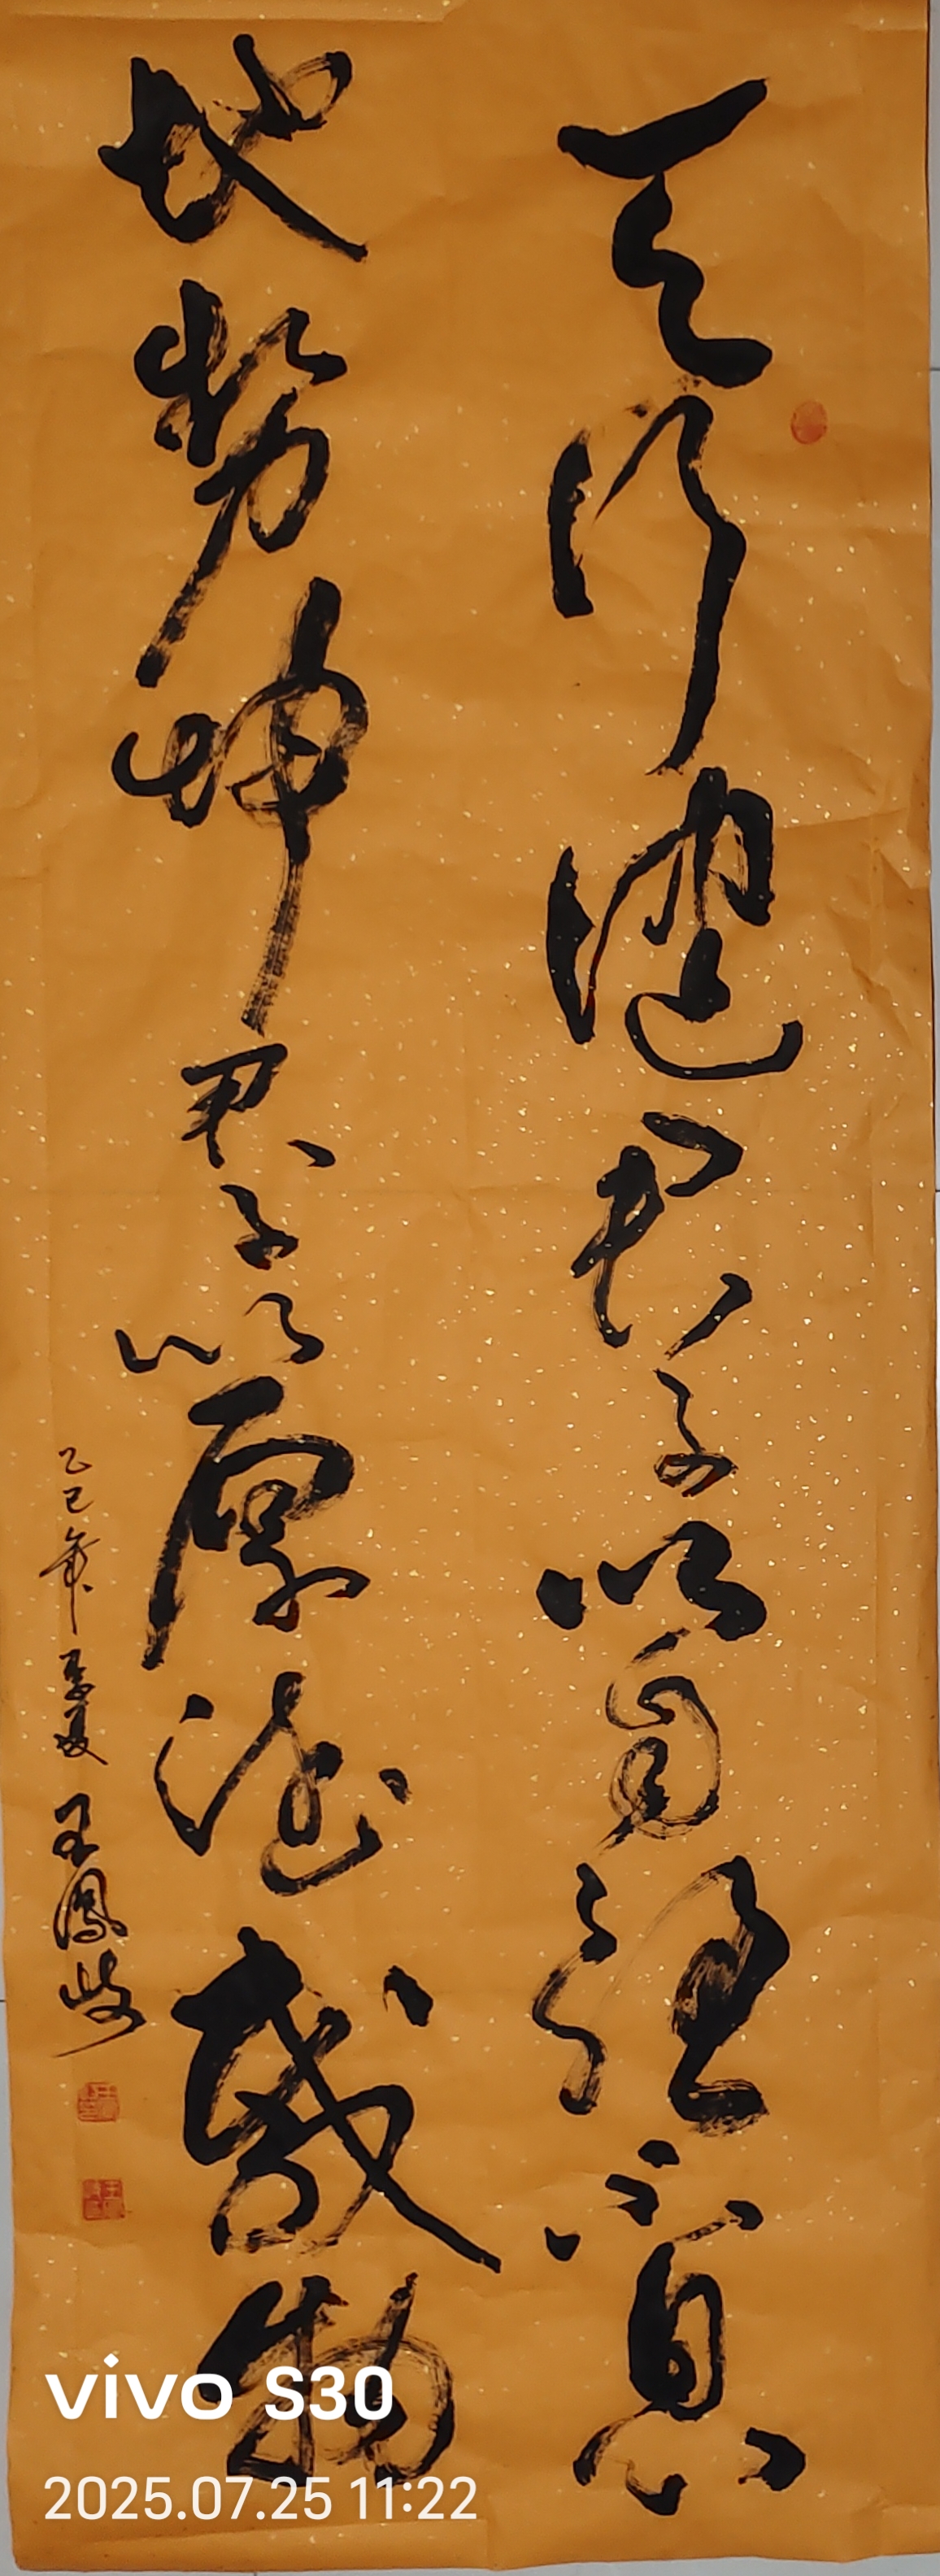 天行健君子以自强不息
地势坤君子以厚德载物
乙巳年孟夏 王凤岐
vivo S30
2025.07.25 11:22